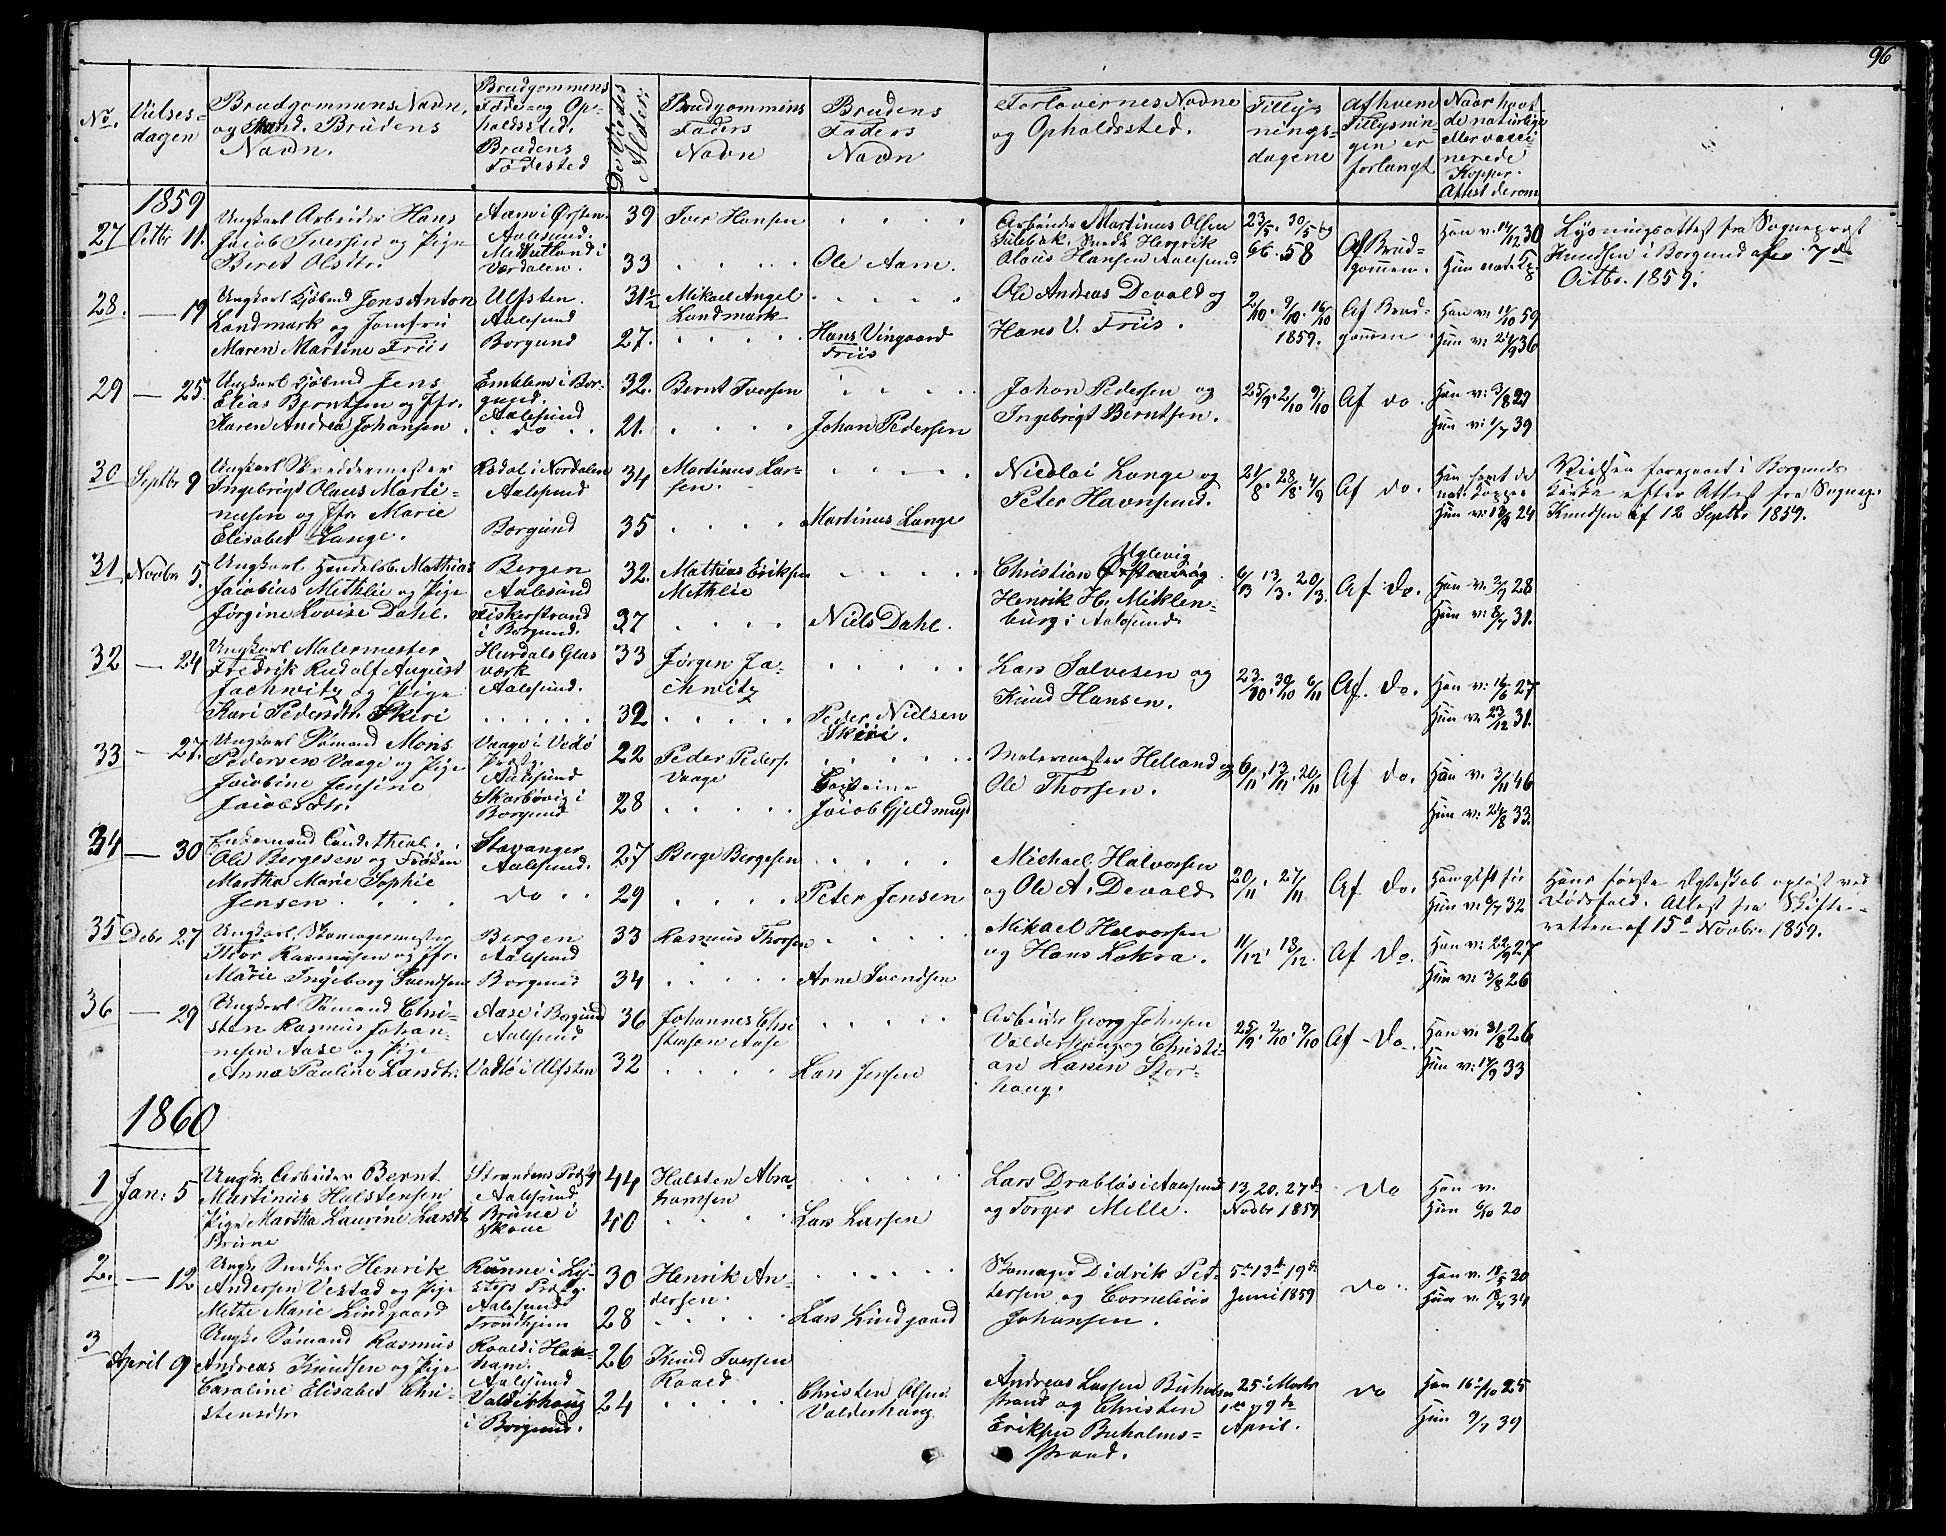 96
No. Vielses-dagen Brudgommens Navn, og Stand. Brudens Navn. Brudgommens Føde- og Opholdssted. Brudens Fødested De Viedes Alder. Brudgommens Faders Navn Brudens Faders Navn Forlovernes Navne og Opholdssted. Tillysningsdagene Af hvem Tillysningen er forlangt Naar havt de naturlige eller vaccinerede Kopper. Attest derom
1859
27 Octbr 11. Ungkarl Arbeider Hans Aam i Ørsten. 39 Iver Hansen
Jacob Iversen og Pige Aalesund.
Beret Olsdtr. Værdalen. 33 Ole Aam.
Arbeider Martinus Olsen 23/5. 30/5 og
Smed Henrik
Olaus Hansen Aalesund 6/6. 58 Af Brudgommen.
Lysningsattest fra Sognepræst
Knudsen i Borgund af 7de
Octbr. 1859.
28. — 19 Ungkarl Kjøbmd Jens Anton Ulfsten. 31½ Mikael Angel
Landmark og Jomfru Aalesund Landmark
Maren Martine Friis Borgund 27. Hans Vingaard
Friis
Ole Andreas Devold og 2/10. 9/10. 16/10 Af Brud- Han v: 11/10 59
Hans V. Friis. 1859. gommen. Hun v: 21/9 36
29 — 25. Ungkarl Kjøbmd Jens Emblem i Bor- 32. Bernt Iversen
Elias Berntsen og Jfr. gund. Aalesund
Karen Andrea Johansen. do 21. Johan Pedersen
Johan Pedersen og 25/9. 2/10 9/10 Af do. Han v: 3/8 27
Ingebrigt Berntsen. Hun v: 1/7 39
30 Septbr 9 Ungkarl Skreddermester Rødal i Nordalen 34 Martinus Lar-
Ingebrigt Olaus Marti- Aalesund sen.
nusen og Jfr Marie
Elisabet Lange. Borgund 35 Martinus Lange
Nicolai Lange og 21/8. 28/8. 4/9 Af do. Han havt de
Peter Havnsund. nat. Kopper
Hun v: 24
Vielsen foregaaet i Borgunds
Kirke efter Attest fra Sognep.
Knudsen af 12 Septbr 1859.
31. Novbr 5. Ungkarl Handelsb. Mathias Bergen 32. Mathias Eriksen
Jacobius Methlie og Pige Aalesund Methlie
Jørgine Lovise Dahl. Fiskerstrand 37 Niels Dahl.
i Borgund.
Uglevig
Christian Østenvig
Henrik H. Miklen- 6/3 13/3. 20/3. Af do. Han v: 3/9 28
burg i Aalesund Hun v: 8/7 31.
32 — 24 Ungkarl Malermester Hurdals Glas 33 Jørgen Ja-
Fredrik Rudolf August værk chwitz
Jachwitz og Pige Aalesund.
Kari Pedersdtr. Skiri 32 Peder Nielsen
Skiri.
Lars Salvesen og 23/10. 30/10 6/11 Af. do. Han v: 16/6 27
Knud Hansen. Hun v: 23/12 31.
33 — 27. Ungkarl Sømand Mons Vaage i Vedø 22 Peder Peders.
Pedersen Vaage og Pige Præstg. Vaage
Jacobine Jensine Aalesund
Jacobsdtr. Skarbøvig i Borgund 28 Jacob Gjeldmyst
Malermester Helland og 6/11. 13/11. 20/11 Af do. Han v. 3/11 46
Ole Thorsen. Hun v: 21/8 33.
34 — 30 Enkemand Cand. theol. Stavanger 27 Berge Bergesen
Ole Bergesen og Frøken Aalesund.
Martha Marie Sophie do 29 Peter Jensen
Jensen.
Michael Halvorsen 20/11. 27/11 Af do. Han gift før
og Ole A. Devold Hun v: 9/7 32
Hans første Ægteskab opløst ved
Dødsfald. Attest fra Skifte-
retten af 15de Novbr. 1859.
35 Decbr 27 Ungkarl Skomagermester Bergen 33 Rasmus Thorsen
Thor Rasmussen og Jfr. Aalesund
Marie Ingeborg Svendsen Borgund 34 Arne Svendsen
Mikael Halvorsen 11/12. 18/12. Af do. Han v: 22/9 27
og Hans Lokra. Hun v: 3/8 26
36 — 29 Ungkarl Sømand Chri- Aase i Borgund 36 Johannes Chri
sten Rasmus Johan- Aalesund stensen Aase
nesen Aase og Pige
Anna Pauline Larsdtr. Vadtø i Ulfsten 32 Lars Jensen
Arbeider Georg Johnsen 25/9. 2/10. 9/10 Af do. Han v: 31/8 26
Valderhaug og Christi- Hun v: 17/9 33
an Larsen Stor-
haug.
1860
1 Jan: 5 Ungk. Arbeider Bernt Strandens Præstg 44 Halsten Abra-
Martinus Halstensen Aalesund hamsen
Pige Martha Laurine Larsdt. Brune i 40 Lars Larsen
Brune Skoue
Lars Drabløs i Aalesund 13, 20. 27de do Han v.
og Torger Melle. Novbr 1859 Hun 6/10 20
2. — 12 Ungk. Snedker Henrik Runne i Ly- 30 Henrik An-
Andersen Vestad og Pige sters Præstg. dersen.
Mette Marie Lindgaard Aalesund
Trondhjem 28 Lars Lindgaard
Skomager Didrik Pet- 5te 13de 19de do. Han v. 18/5 30
tersen og Cornelius Juni 1859 Hun v. 18/7 34
Johansen.
3 April 9 Ungk. Sømand Rasmus Roald i Har- 26 Knud Iversen
Andreas Knudsen og Pige ham. Roald
Caroline Elisabet Chri- Aalesund
stensdtr. Valderhaug 24 Christen Olsen
i Borgund. Valderhaug
Andreas Larsen Buholm 25 i Marts do Han 16/10 25
strand og Christen 1ste 9de Hun 9/7 39
Eriksen Buholms- April.
strand.